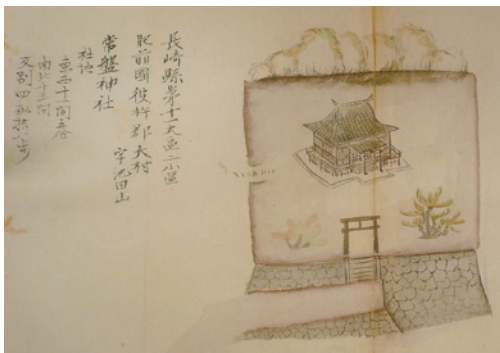 長崎縣第十一大區二小區
肥前國彼杵郡大村
字池田山
常盤神社
社地
東西十一間
南北十三間
反別四畝